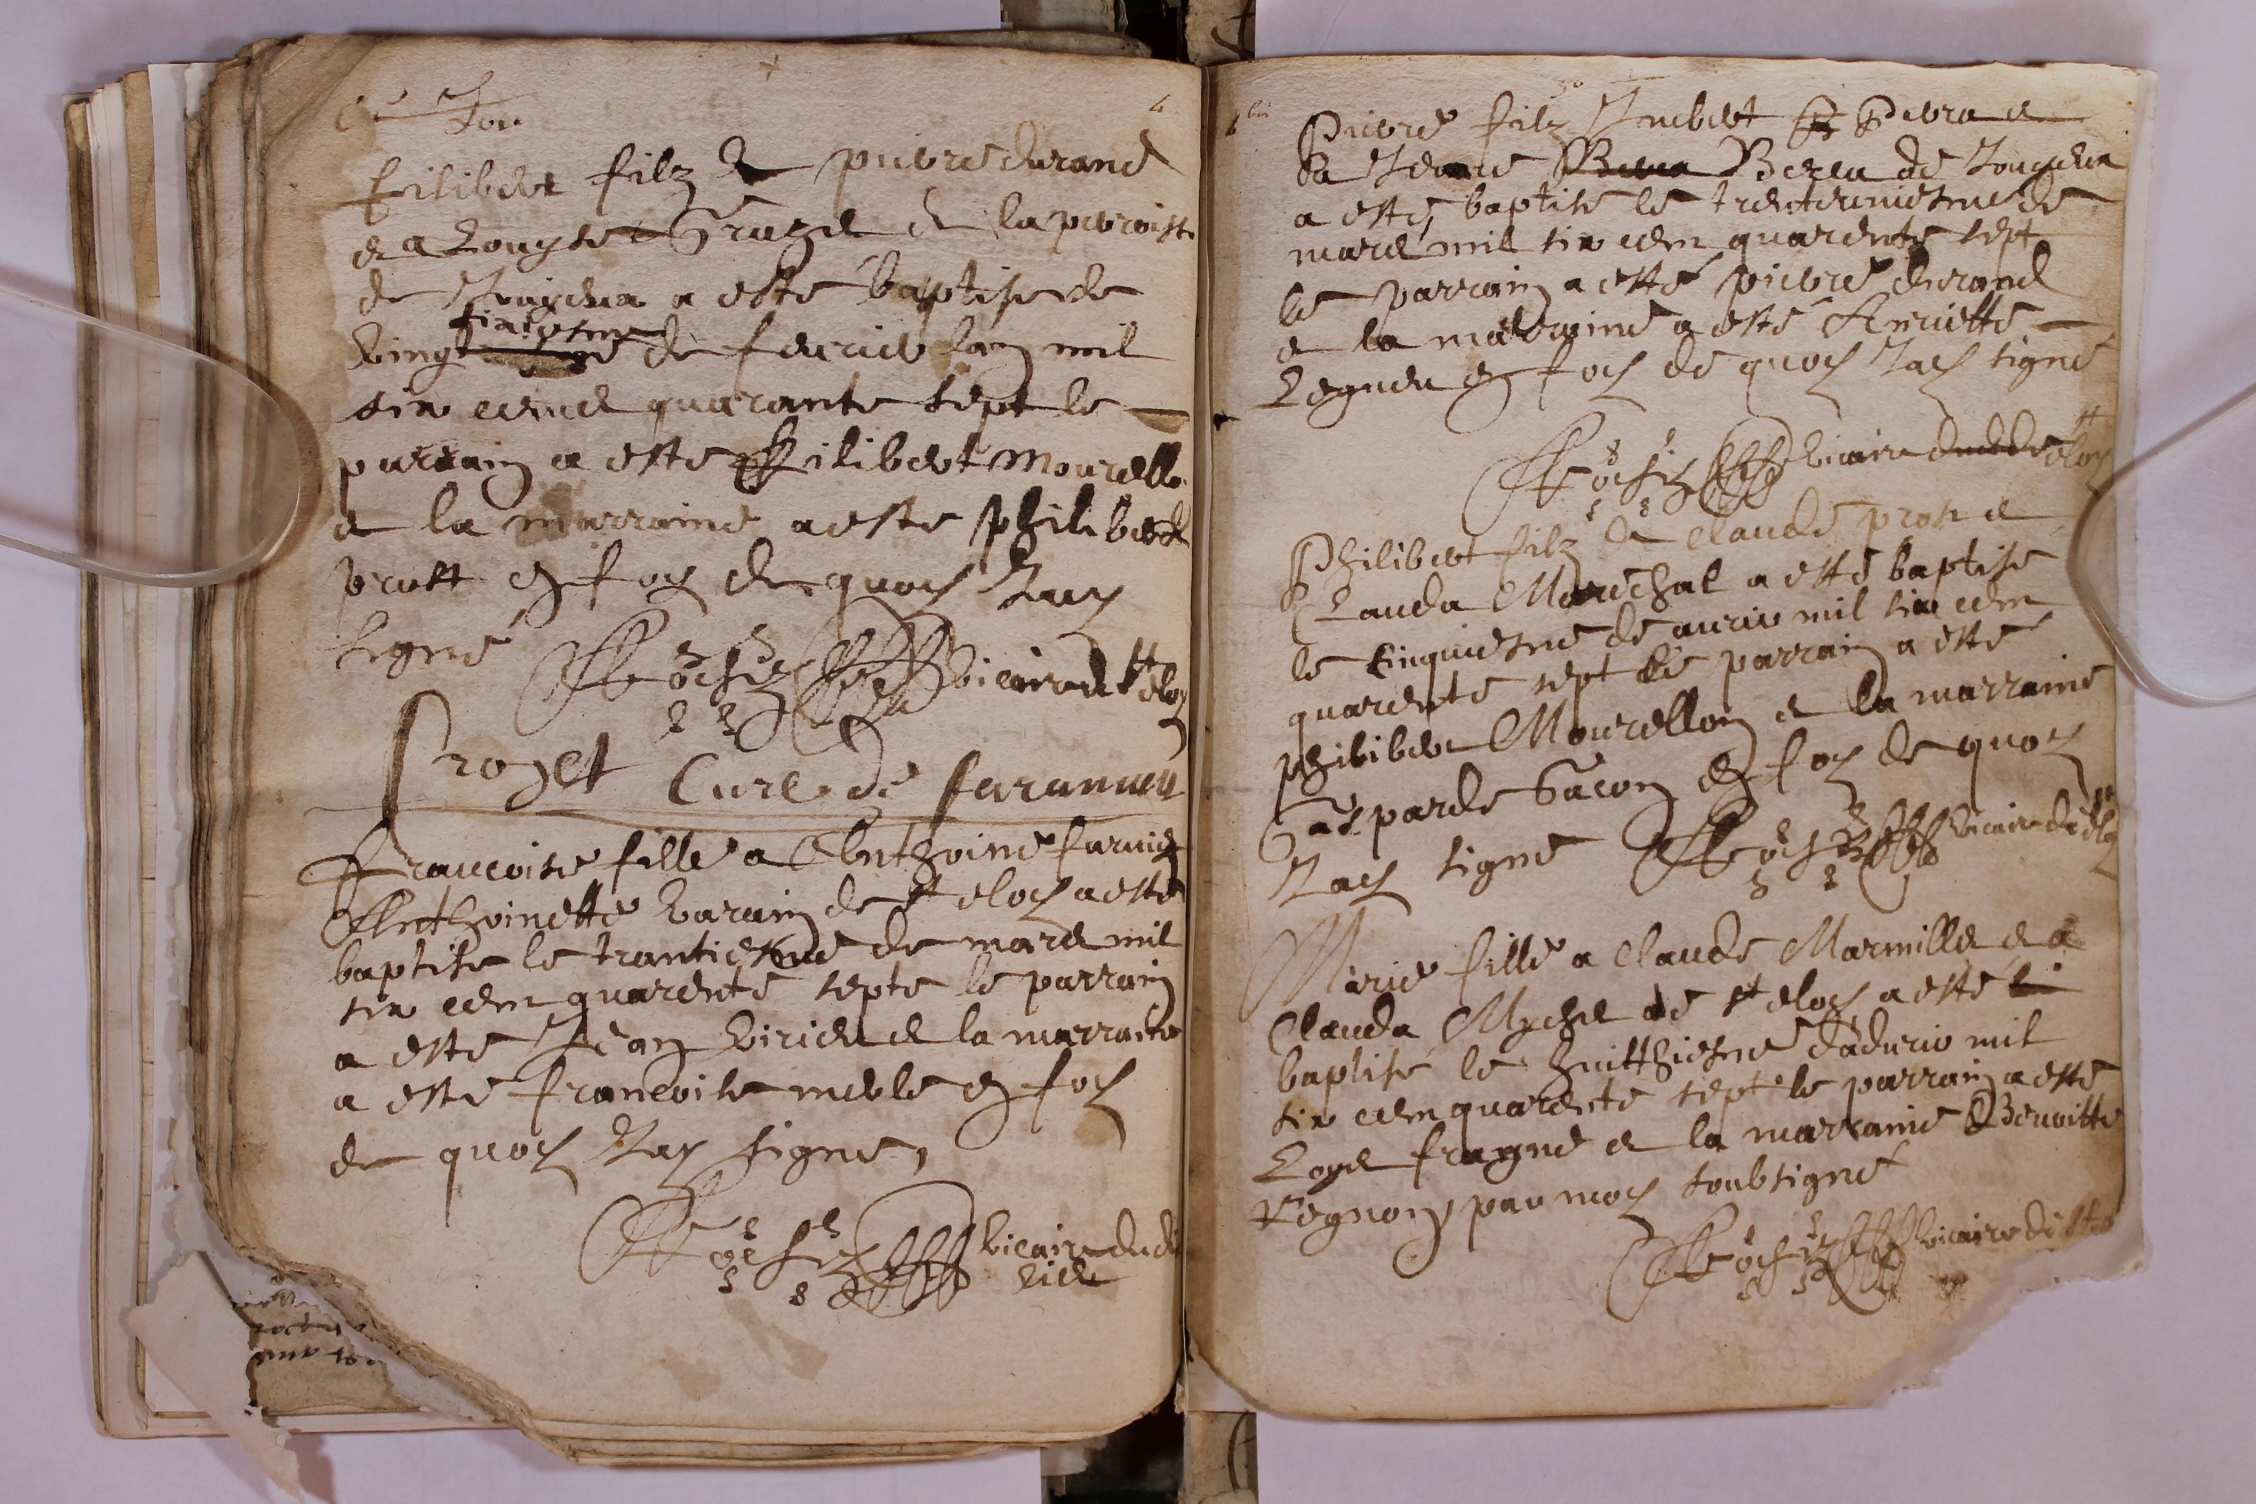 filibert filz de pierre durand
et a Louyse Gruzel de la parroisse
de Jouyeua a esté baptise le
vingt siziesme de feurier lan mil
six cens quarante sept le
parrain a este filibert mourello
et la marraine a este philiberde
prost en foy de quoy Jay
signé
vicaire de st eloy
froget Cure de faramans
francoise fille a Anthoine furnier
Anthoinette Varain de st eloy a esté
baptise le trantiesme de mars mil
six cens quarente septe le parrain
a este Jean Viricel et la marraine
a esté francoise merle en foy
de quoy Jay signe,
vicaire dudit
lieu
4 bis
Pierre filz Imbert Perra et
a Jeanne Berra de Jouyeua
a esté baptise le trenteuniesme de
mars mil six cens quarente sept
le parrain a esté pierre durand
et la marraine a esté Anriette
en foy de quoy Jay signé
vicaire de st eloy
Philibert filz de Claude prost et
Clauda Marechal a esté baptise
le cinquiesme de auril mil six cens
quarente sept le parrain a esté
philibert Mourellon et la marraine
Gasparde Gacon en foy de quoy
Jay signé vicaire de st eloy
Marie fille a Claude Marmille et a
Clauda Mychel de st eloy a esté
baptisé le huitthiesme dadurio mil
six cens quarente sept le parrain a esté
Loys fragne et la marraine Benoitte
Regnon par moy soubsigné
vicaire de st